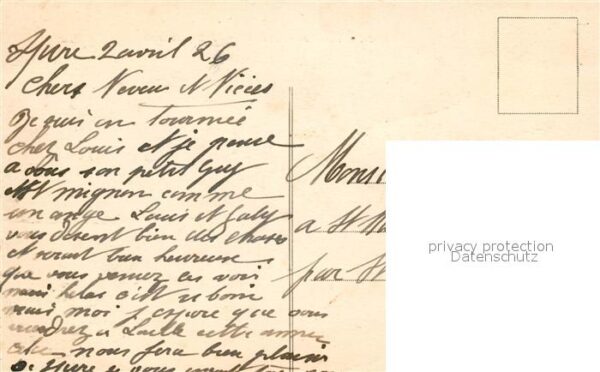 2 avril 26
Chers Neveu et Nièces
Je suis en tournée
chez Louis et je pense
a vous son petit Guy
est mignon comme
un ange Louis et
vous disent bien des choses
et seront bien heureuse
que vous venez les voir
mais helas c'est si loin
mais moi j espère que vous
viendrez a cette année
cela nous fera bien plaisir
Monsi
a St
par St
privacy protection
Datenschutz